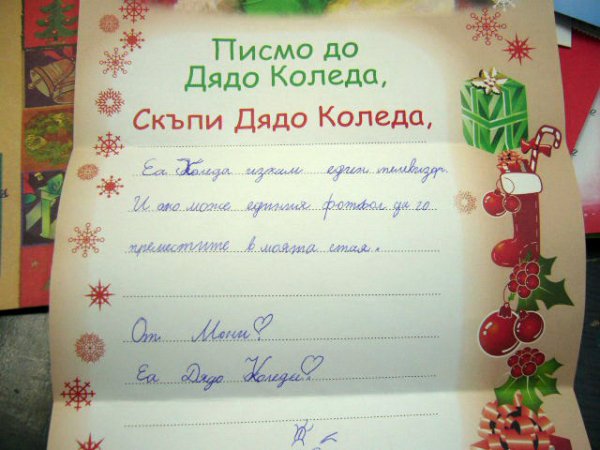 Писмо до
Дядо Коледа,
Скъпи Дядо Коледа,
За Коледа изкам един телевизор.
И ако може единия фотьол да го
преместите в моята стая.
От Мони♡
За Дядо Коледа♡